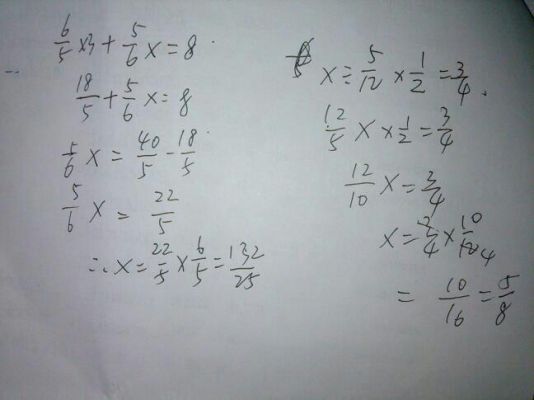 6/5 x3 + 5/6 x = 8
18/5 + 5/6 x = 8
5/6 x = 40/5 - 18/5
5/6 x = 22/5
∴ x = 22/5 × 6/5 = 132/25
x ÷ 5/12 × 1/2 = 3/4
12/5 x × 1/2 = 3/4
12/10 x = 3/4
x = 3/4 × 10/12 4
= 10/16 = 5/8